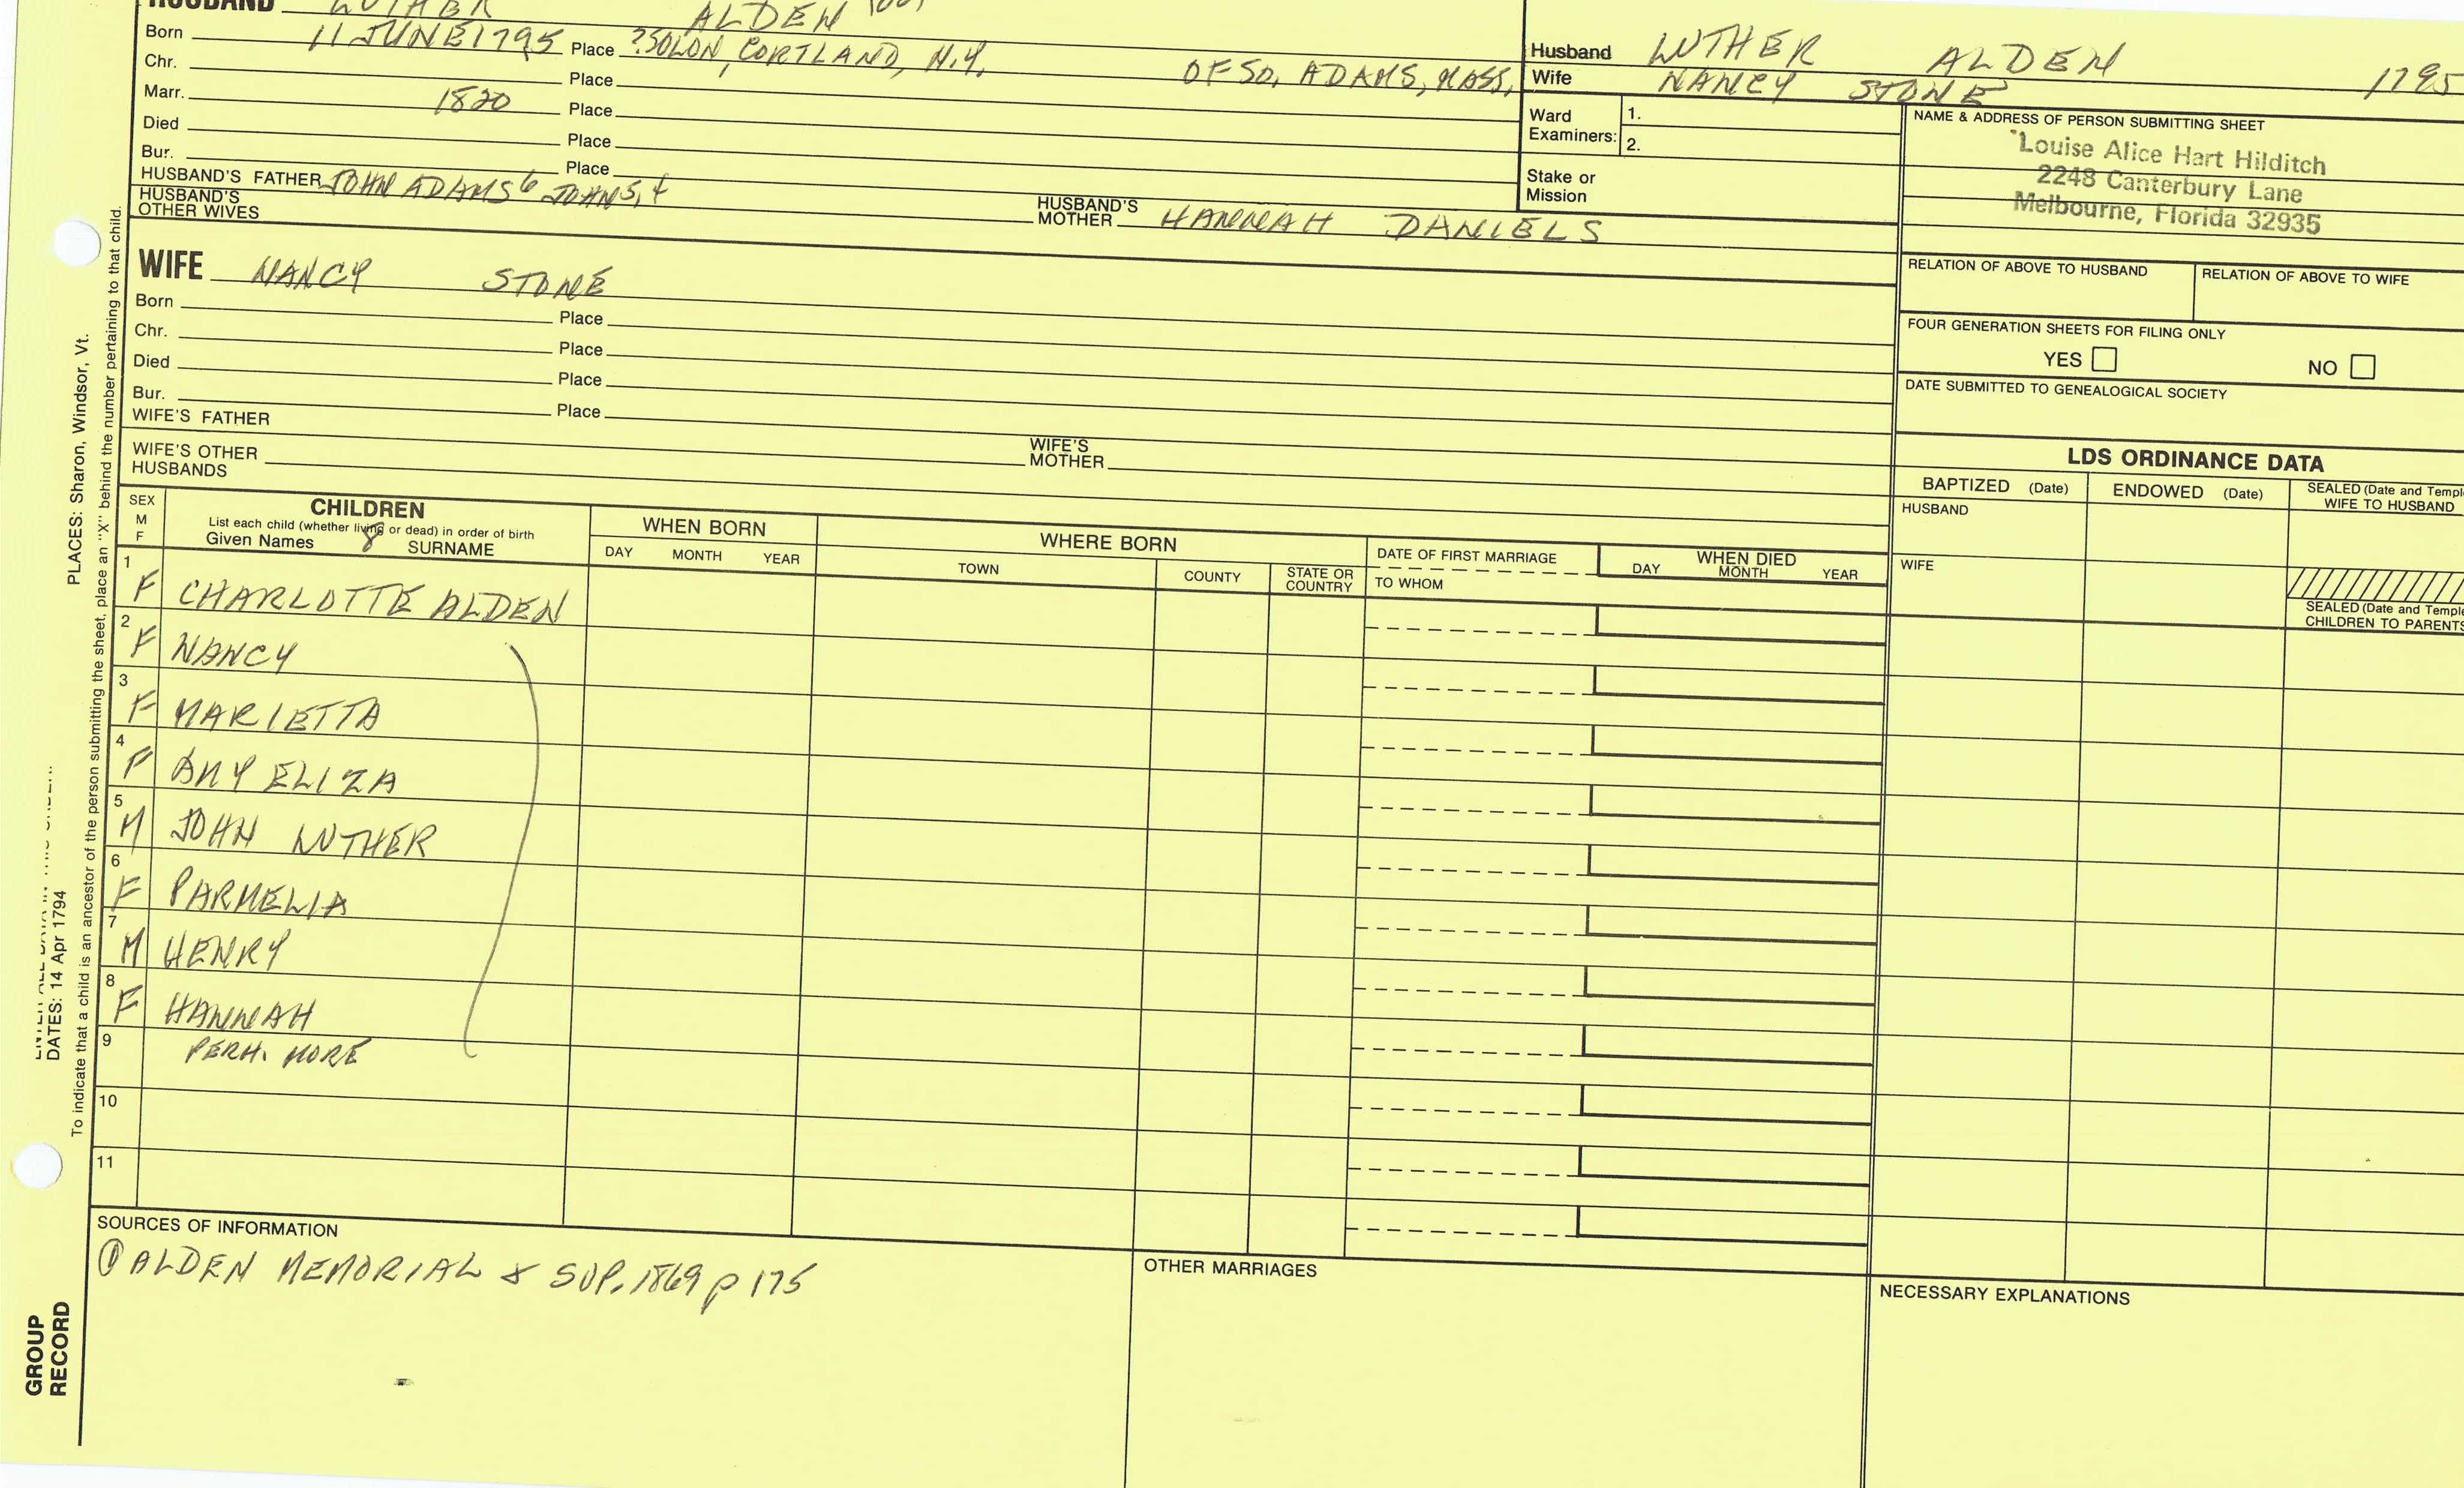 HUSBAND LUTHER ALDEN
Born 11 JUNE 1795 Place ?SOLON, CORTLAND, N.Y. OF SO. ADAMS, MASS,
Chr. Place
Marr. 1820 Place
Died Place
Bur. Place
HUSBAND'S FATHER JOHN ADAMS 6 JOHN 5, 4
HUSBAND'S MOTHER HANNAH DANIELS
HUSBAND'S OTHER WIVES
WIFE NANCY STONE
Born Place
Chr. Place
Died Place
Bur. Place
WIFE'S FATHER
WIFE'S MOTHER
WIFE'S OTHER HUSBANDS
Husband LUTHER ALDEN 1795
Wife NANCY STONE
Ward Examiners: 1.
2.
Stake or Mission
NAME & ADDRESS OF PERSON SUBMITTING SHEET
Louise Alice Hart Hilditch
2248 Canterbury Lane
Melbourne, Florida 32935
RELATION OF ABOVE TO HUSBAND RELATION OF ABOVE TO WIFE
FOUR GENERATION SHEETS FOR FILING ONLY
YES NO
DATE SUBMITTED TO GENEALOGICAL SOCIETY
LDS ORDINANCE DATA
BAPTIZED (Date) ENDOWED (Date) SEALED (Date and Templ
WIFE TO HUSBAND
HUSBAND
WIFE
SEALED (Date and Templ
CHILDREN TO PARENTS
SEX
M
F
CHILDREN
List each child (whether living or dead) in order of birth
Given Names 8 SURNAME
WHEN BORN
DAY MONTH YEAR
WHERE BORN
TOWN COUNTY STATE OR COUNTRY
DATE OF FIRST MARRIAGE
TO WHOM
WHEN DIED
DAY MONTH YEAR
1 F CHARLOTTE ALDEN
2 F NANCY
3 F MARIETTA
4 F AMY ELIZA
5 M JOHN LUTHER
6 F PARMELIA
7 M HENRY
8 F HANNAH
9 PERH. MORE
10
11
SOURCES OF INFORMATION
1 ALDEN MEMORIAL & SUP. 1869 p 175
OTHER MARRIAGES
NECESSARY EXPLANATIONS
DATES: 14 Apr 1794
PLACES: Sharon, Windsor, Vt.
To indicate that a child is an ancestor of the person submitting the sheet, place an "X" behind the number pertaining to that child.
GROUP
RECORD